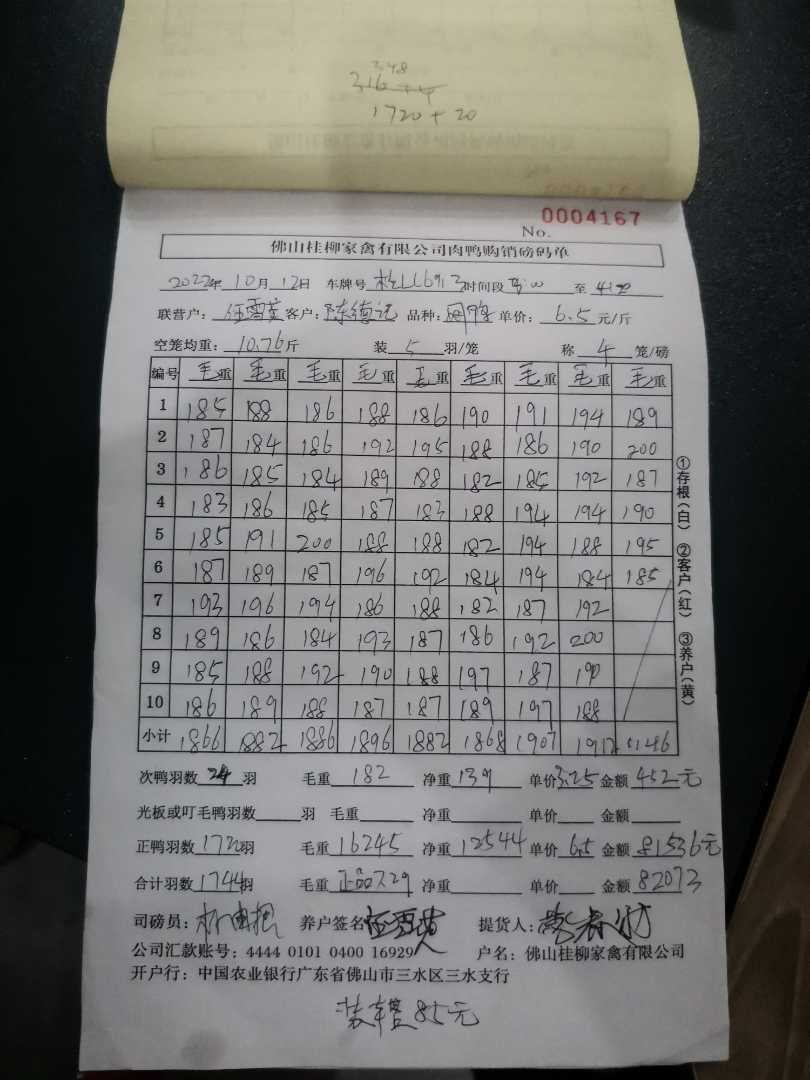 348
316+4
1720+20
0004167
No.
佛山桂柳家禽有限公司肉鸭购销磅码单
2022年10月12日 车牌号 时间段 至
联营户: 客户:陈德记 品种: 单价:6.5元/斤
空笼均重:10.76斤 装5羽/笼 称4笼/磅
编号 毛重 毛重 毛重 毛重 毛重 毛重 毛重 毛重 毛重
1 185 188 186 188 186 190 191 194 189
2 187 184 186 192 195 188 186 190 200
3 186 185 184 189 188 182 185 192 187
4 183 186 185 187 183 188 194 194 190
5 185 191 200 188 188 182 194 188 195
6 187 189 187 196 192 184 194 184 185
7 193 196 194 186 188 182 187 192
8 189 186 184 193 187 186 192 200
9 185 188 192 190 188 197 187 190
10 186 189 188 187 187 189 197 188
小计 1866 1882 1886 1896 1882 1868 1907 1912 1146
①存根(白) ②客户(红) ③养户(黄)
次鸭羽数24羽 毛重182 净重139 单价3.25 金额452元
光板或叮毛鸭羽数 羽 毛重 净重 单价 金额
正鸭羽数1720羽 毛重16245 净重12544 单价6.5 金额81536元
合计羽数1744羽 毛重正品7.29 净重 单价 金额82073
司磅员: 养户签名 提货人:
公司汇款账号: 4444 0101 0400 16929 户名: 佛山桂柳家禽有限公司
开户行: 中国农业银行广东省佛山市三水区三水支行
装车登85元